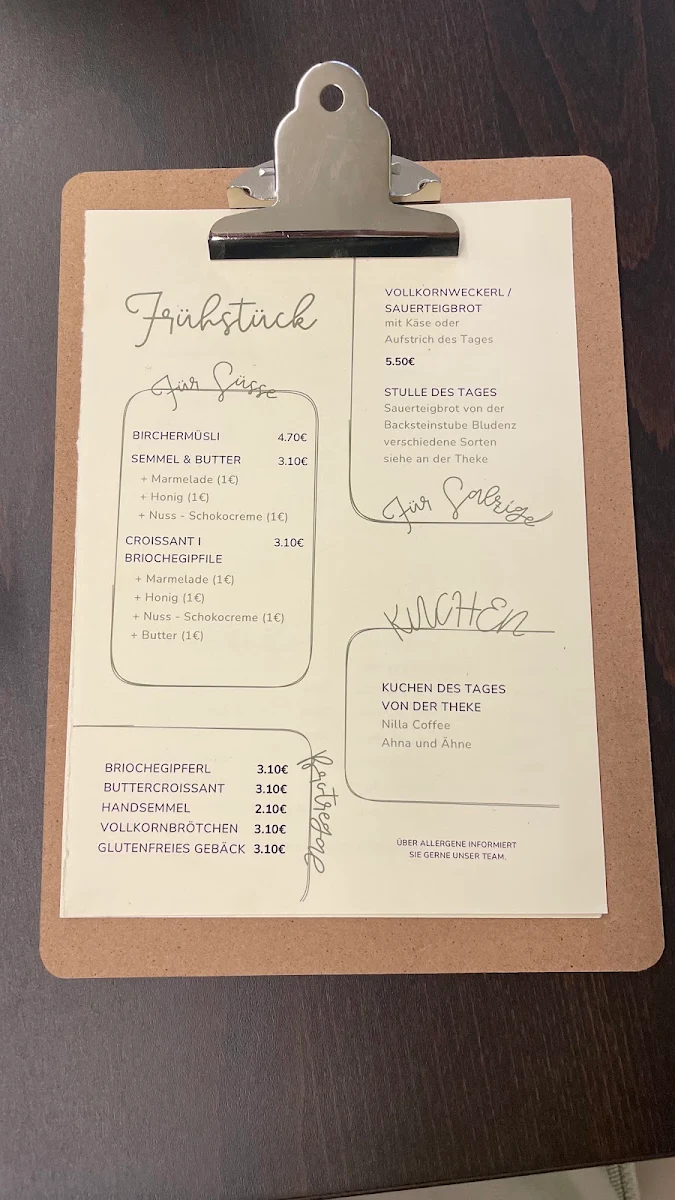 Frühstück
Für Süsse
BIRCHERMÜSLI 4.70€
SEMMEL & BUTTER 3.10€
+ Marmelade (1€)
+ Honig (1€)
+ Nuss - Schokocreme (1€)
CROISSANT I 3.10€
BRIOCHEGIPFILE
+ Marmelade (1€)
+ Honig (1€)
+ Nuss - Schokocreme (1€)
+ Butter (1€)
BRIOCHEGIPFERL 3.10€
BUTTERCROISSANT 3.10€
HANDSEMMEL 2.10€
VOLLKORNBRÖTCHEN 3.10€
GLUTENFREIES GEBÄCK 3.10€
Brotregal
VOLLKORNWECKERL /
SAUERTEIGBROT
mit Käse oder
Aufstrich des Tages
5.50€
STULLE DES TAGES
Sauerteigbrot von der
Backsteinstube Bludenz
verschiedene Sorten
siehe an der Theke
Für Salzige
KUCHEN
KUCHEN DES TAGES
VON DER THEKE
Nilla Coffee
Ahna und Ähne
ÜBER ALLERGENE INFORMIERT
SIE GERNE UNSER TEAM.